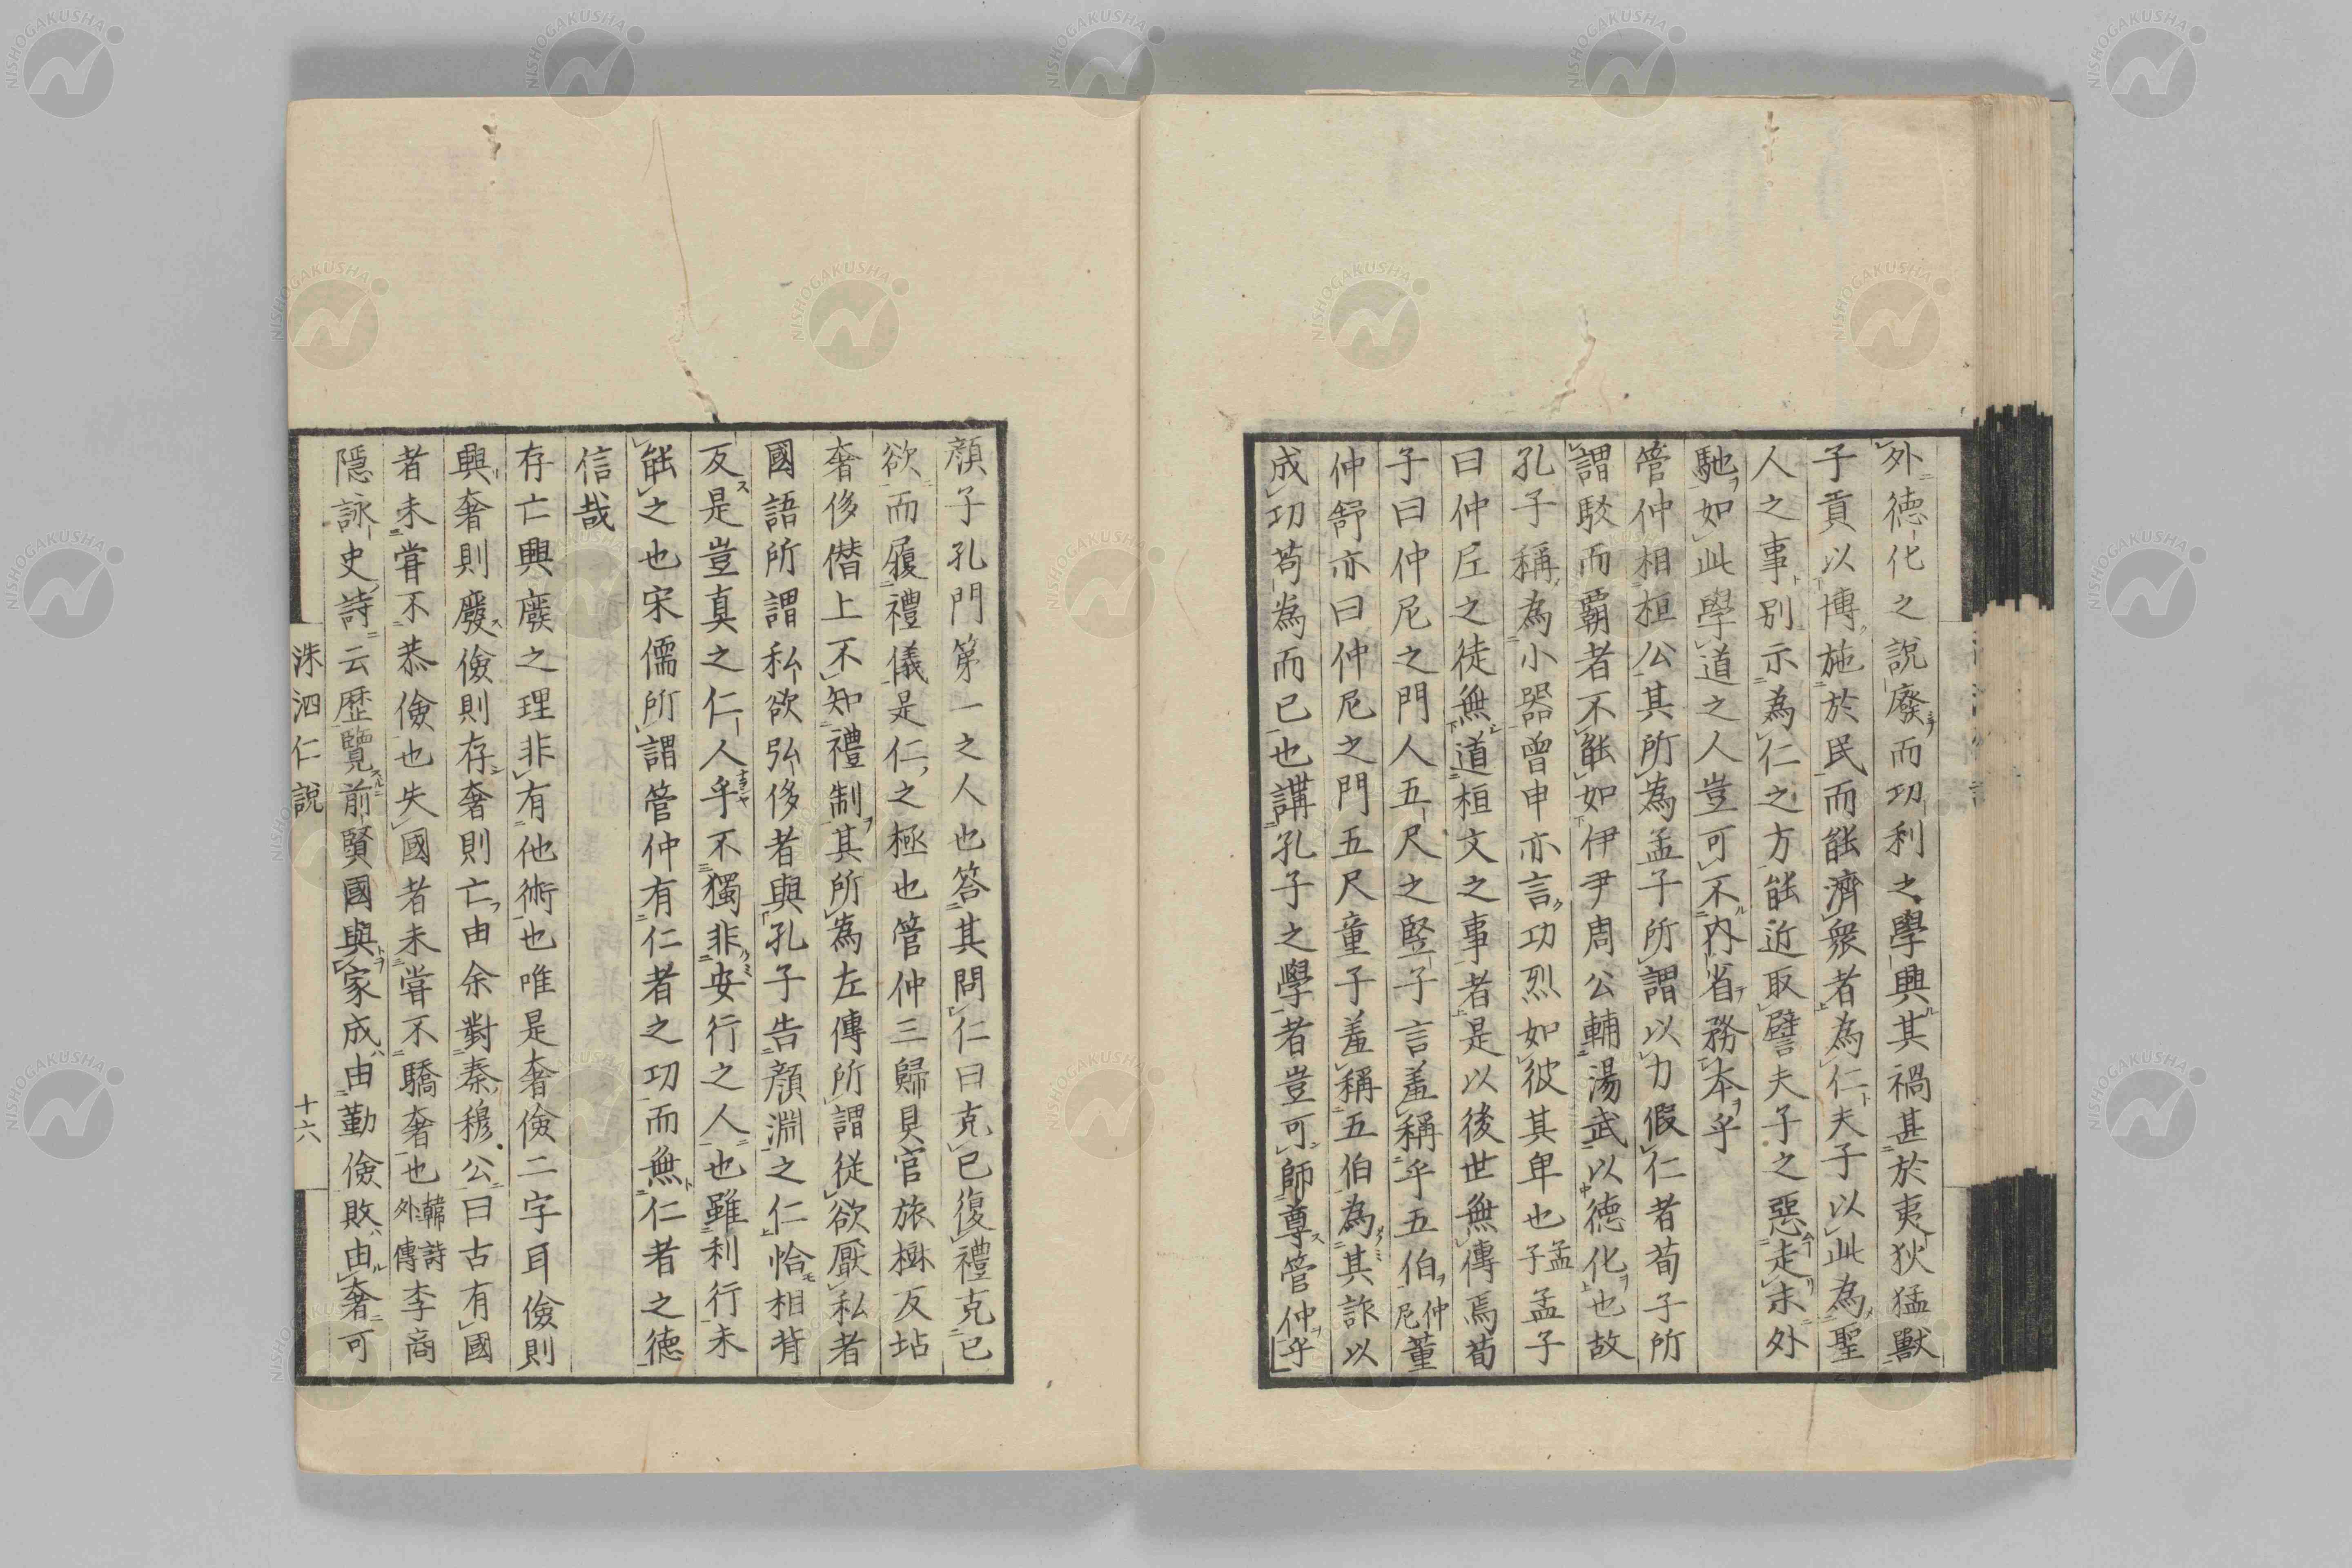 外德化之説廢而功利之學興其禍甚於夷狄猛獸
子貢以博施於民而能濟衆者為仁夫子以此為聖
人之事別示為仁之方能近取譬夫子之惡走末外
馳如此學道之人豈可不内省務本乎
管仲相桓公其所為孟子所謂以力假仁者荀子所
謂駁而覇者不能如伊尹周公輔湯武以德化也故
孔子稱為小器曾申亦言功烈如彼其卑也孟子孟子
曰仲尼之徒無道桓文之事者是以後世無傳焉荀
子曰仲尼之門人五尺之豎子言羞稱乎五伯仲尼董
仲舒亦曰仲尼之門五尺童子羞稱五伯為其詐以
成功苟為而已也講孔子之學者豈可師尊管仲乎
顔子孔門第一之人也答其問仁曰克己復禮克己
欲而履禮儀是仁之極也管仲三歸具官旅樹反坫
奢侈僭上不知禮制其所為左傳所謂從欲厭私者
國語所謂私欲弘侈者與孔子告顔淵之仁恰相背
反是豈真之仁人乎不獨非安行之人也雖利行未
能之也宋儒所謂管仲有仁者之功而無仁者之德
信哉
存亡興廢之理非有他術也唯是奢儉二字耳儉則
興奢則廢儉則存奢則亡由余對秦穆公曰古有國
者未嘗不恭儉也失國者未嘗不驕奢也韓詩外傳李商
隱詠史詩云歴覽前賢國與家成由勤儉敗由奢可
洙泗仁説
十六
NISHOGAKUSHA